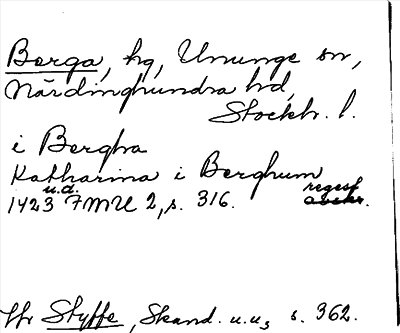 Berga, hg, Ununge sn,
Närdinghundra hd,
Stockh. l.
i Bergha
Katharina i Berghum
u.d. regest
1423 FMU 2, s. 316.
Jfr Styffe, Skand. u.u., s. 362.